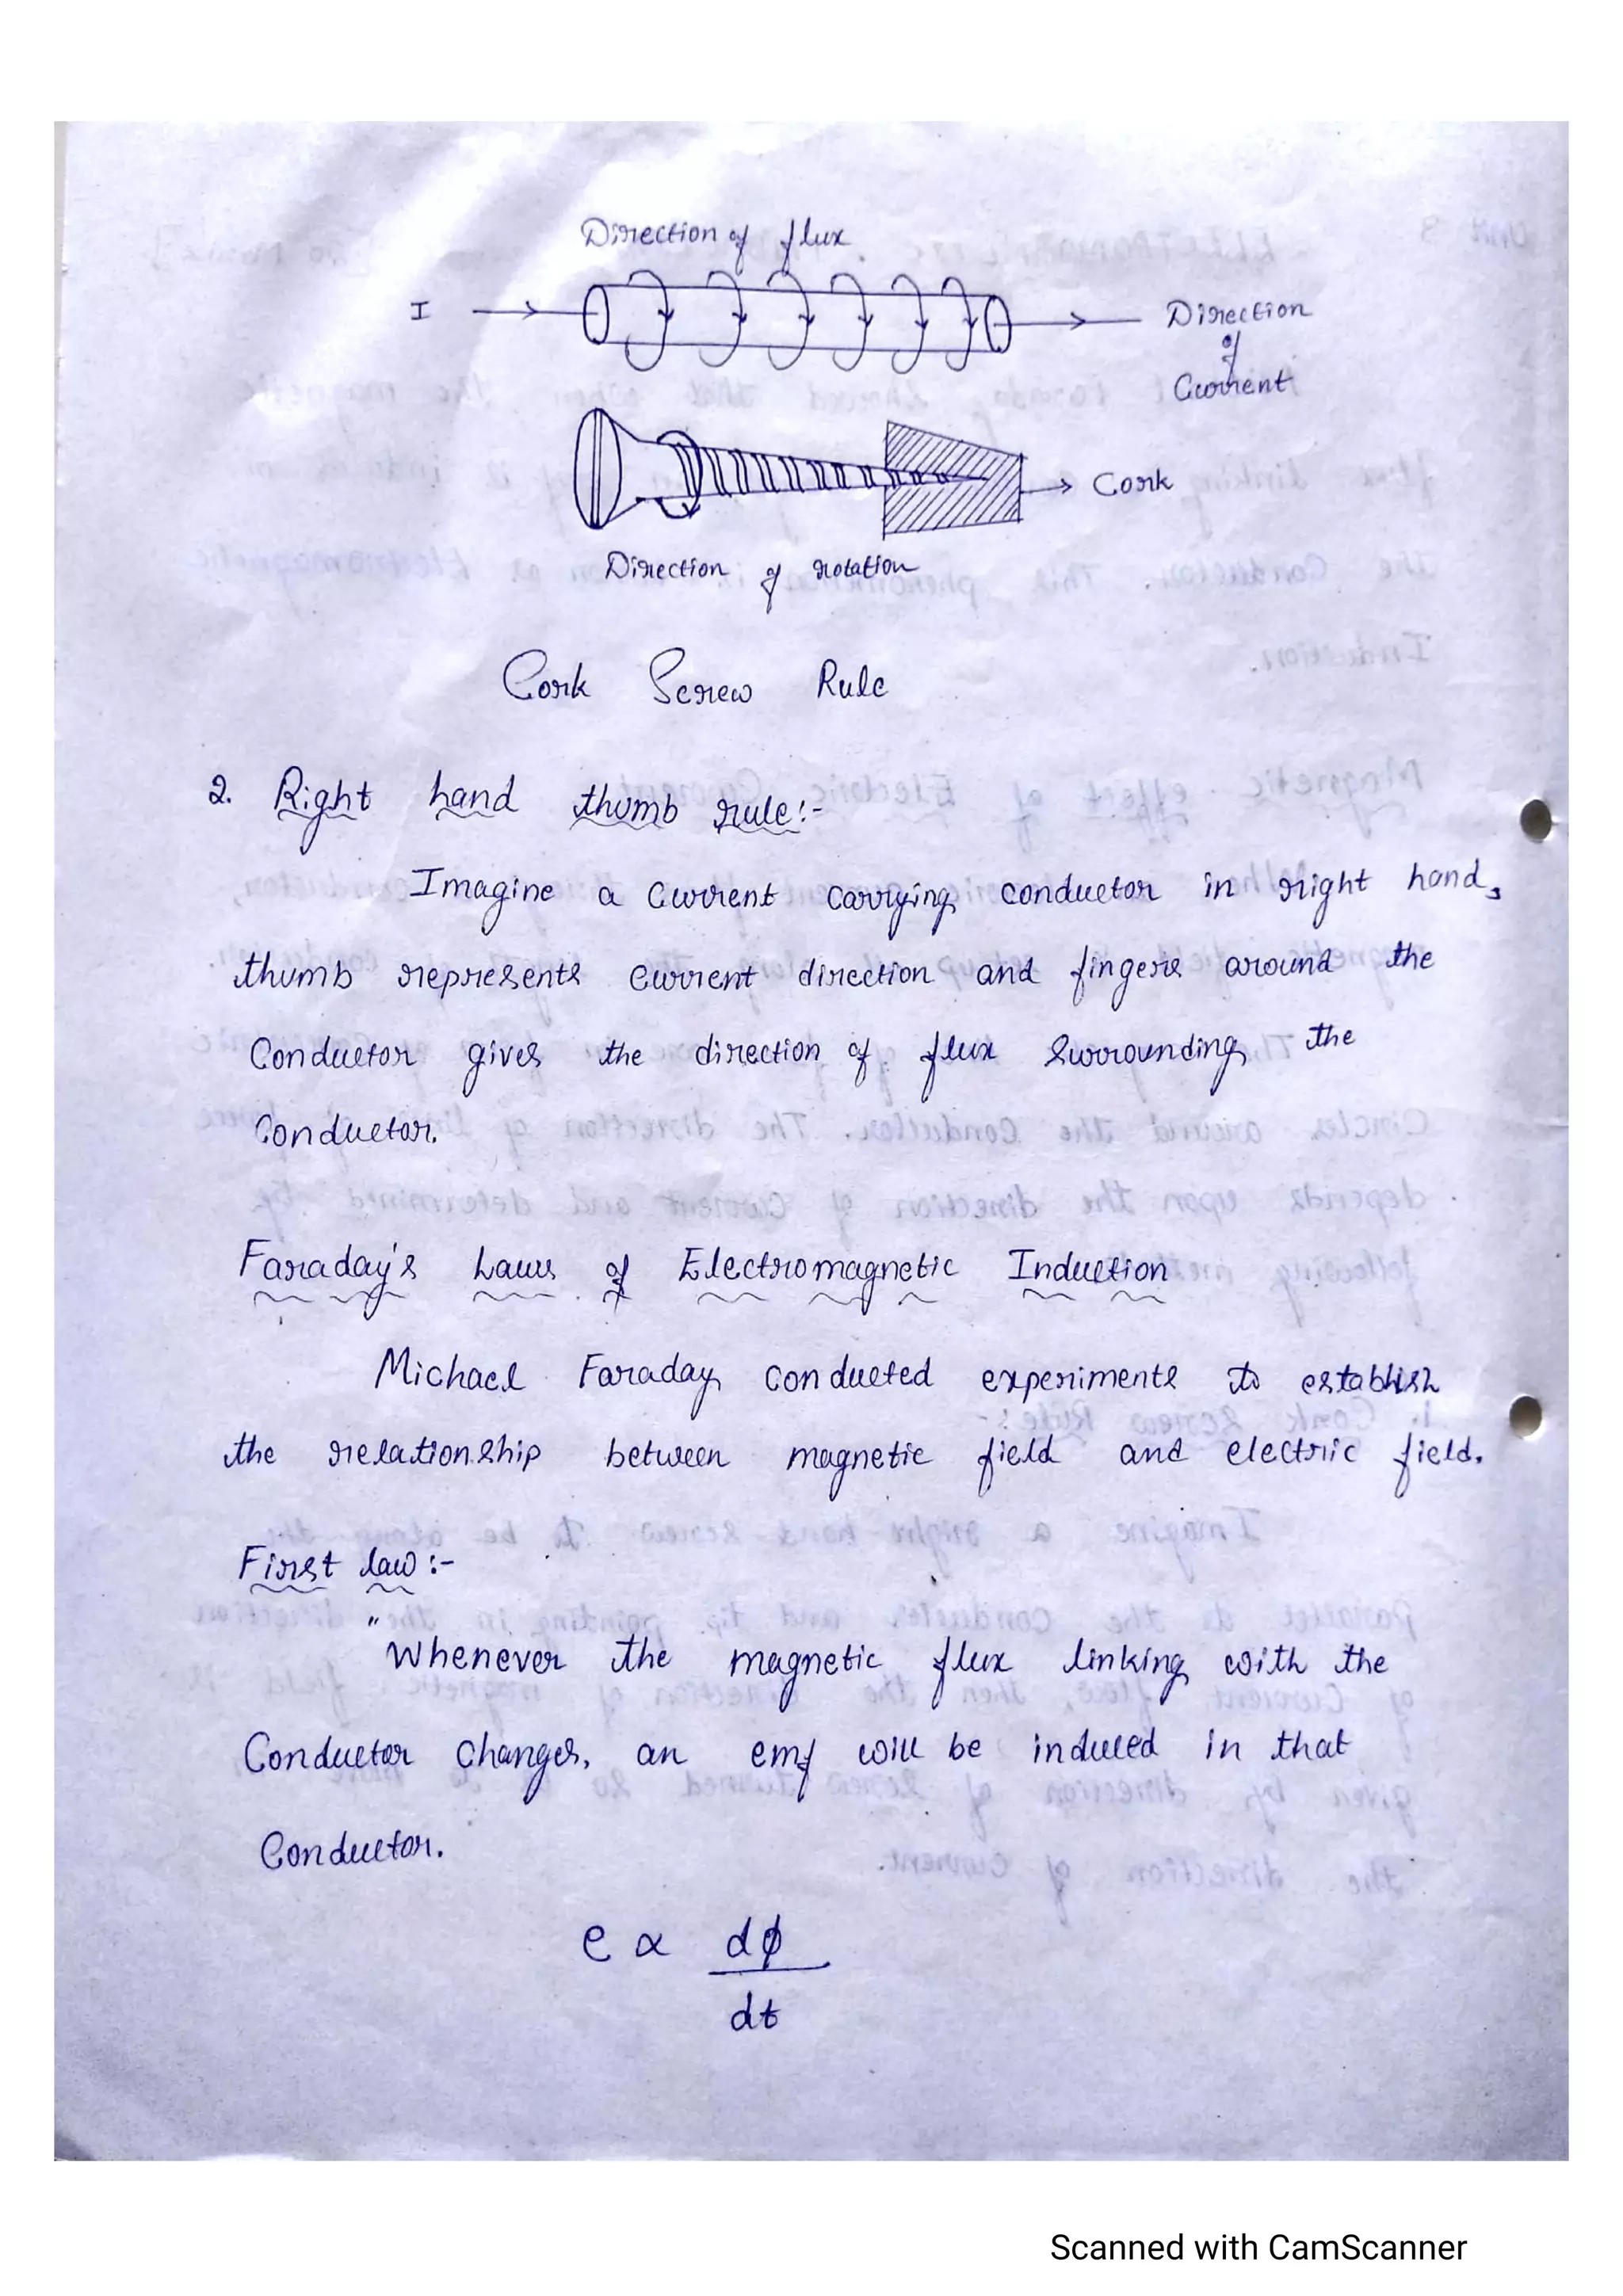 Direction of flux
I
Direction
of
Current
Cork
Direction of rotation
Cork Screw Rule
2. Right hand thumb rule:-
Imagine a current carrying conductor in right hand,
thumb represents current direction and fingers around the
Conductor gives the direction of flux surrounding the
Conductor.
Faraday's Laws of Electromagnetic Induction
Michael Faraday conducted experiments to establish
the relationship between magnetic field and electric field.
First law:-
"Whenever the magnetic flux linking with the
Conductor changes, an emf will be induced in that
Conductor.
e ∝ dφ
dt
Scanned with CamScanner